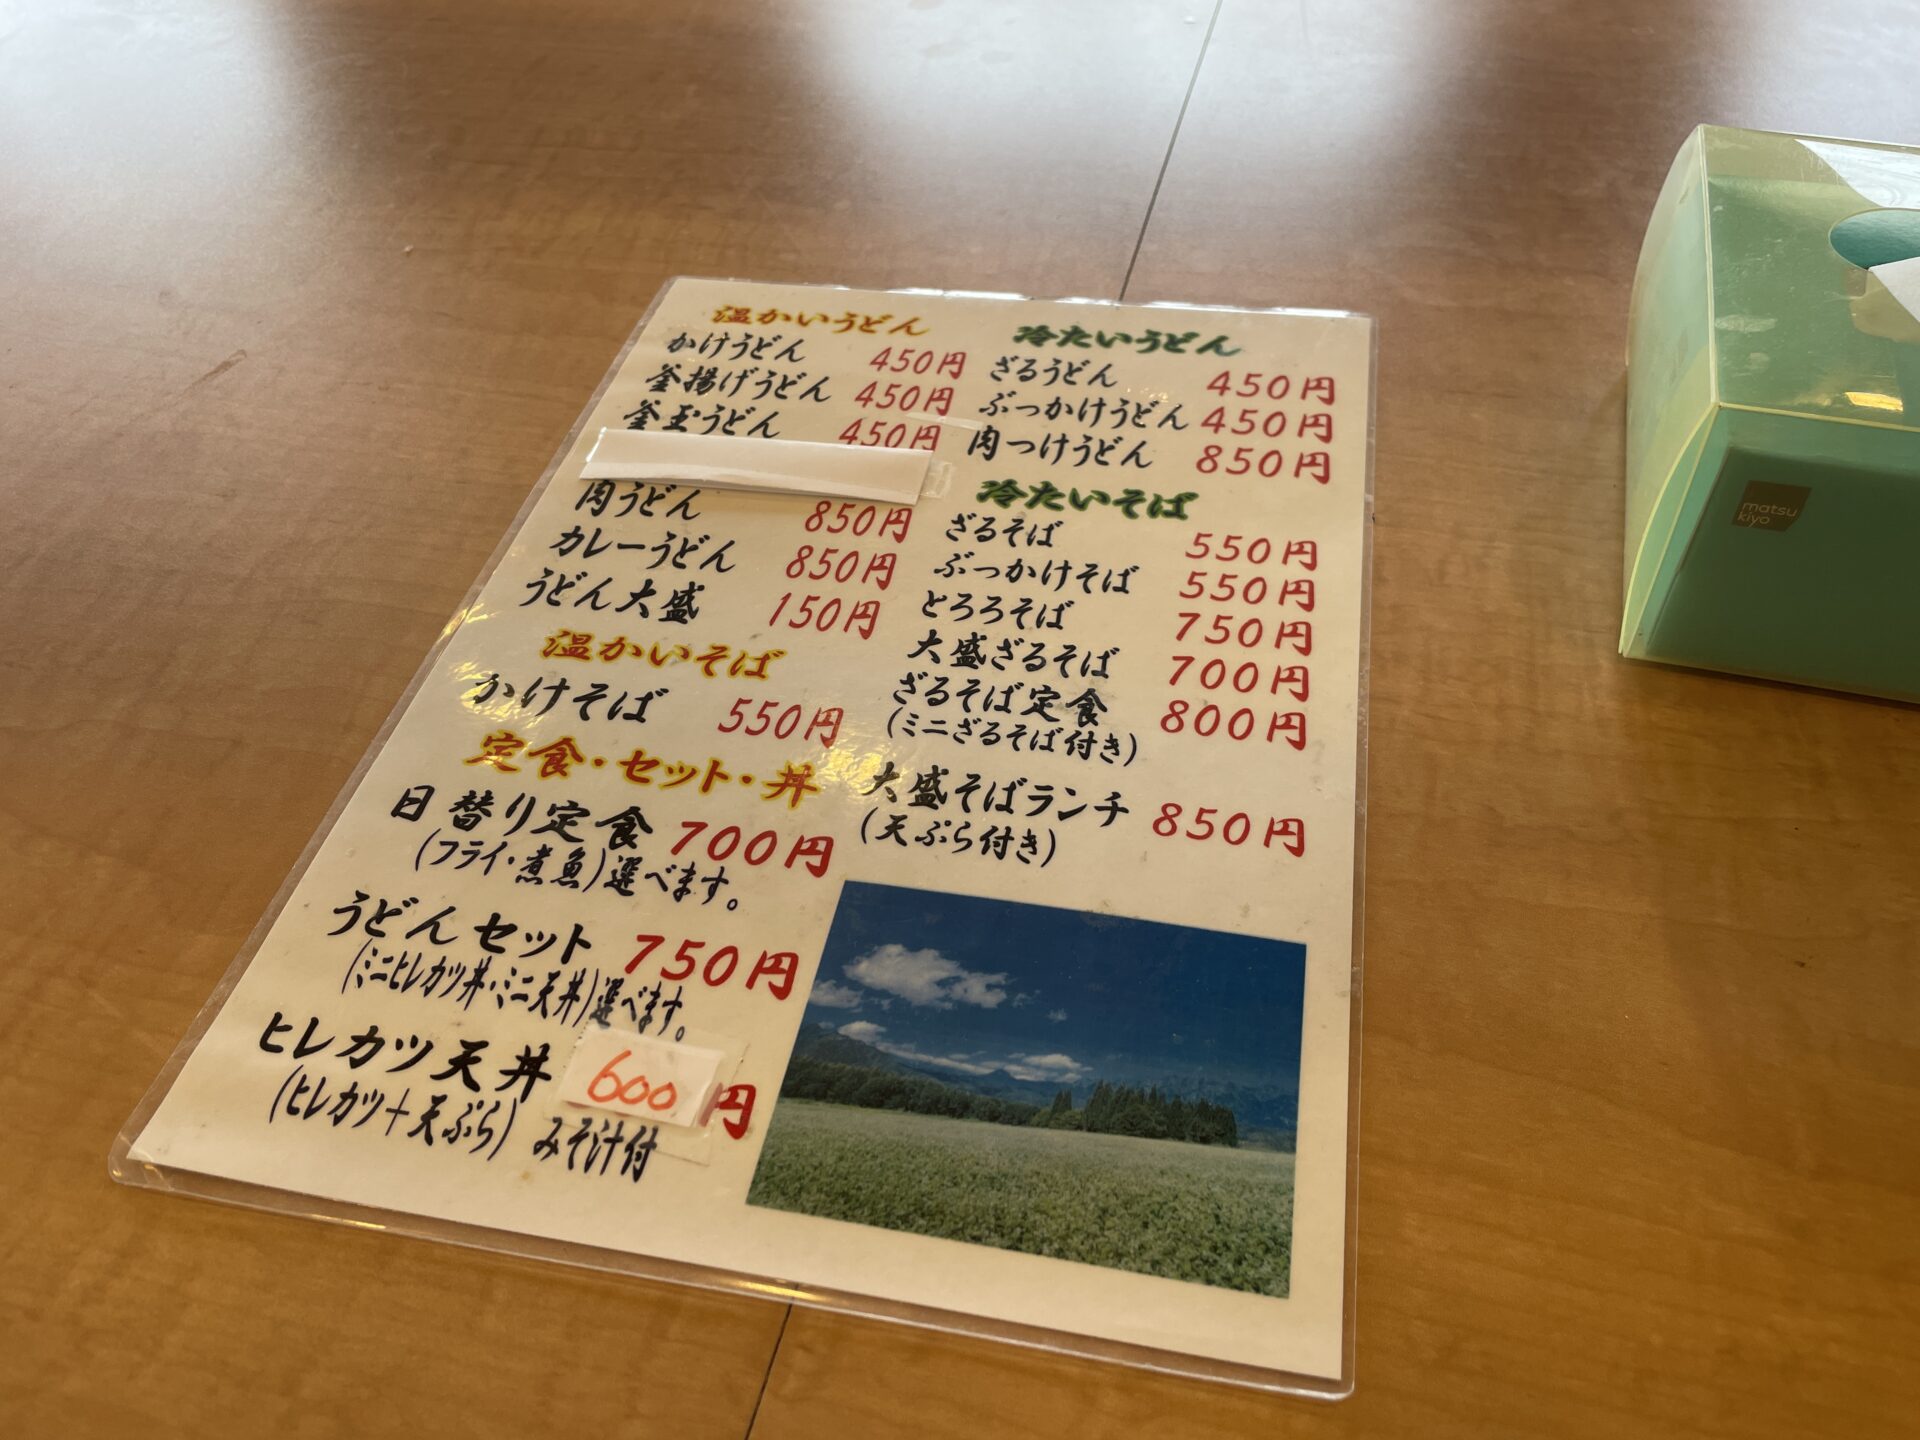 温かいうどん
かけうどん 450円
釜揚げうどん 450円
釜玉うどん 450円
肉うどん 850円
カレーうどん 850円
うどん大盛 150円
温かいそば
かけそば 550円
定食・セット・丼
日替り定食 700円
(フライ・煮魚)選べます。
うどんセット 750円
(ミニヒレカツ丼・ミニ天丼)選べます。
ヒレカツ天丼 600円
(ヒレカツ+天ぷら) みそ汁付
冷たいうどん
ざるうどん 450円
ぶっかけうどん 450円
肉つけうどん 850円
冷たいそば
ざるそば 550円
ぶっかけそば 550円
とろろそば 750円
大盛ざるそば 700円
ざるそば定食 800円
(ミニざるそば付き)
大盛そばランチ 850円
(天ぷら付き)
matsu
kiyo